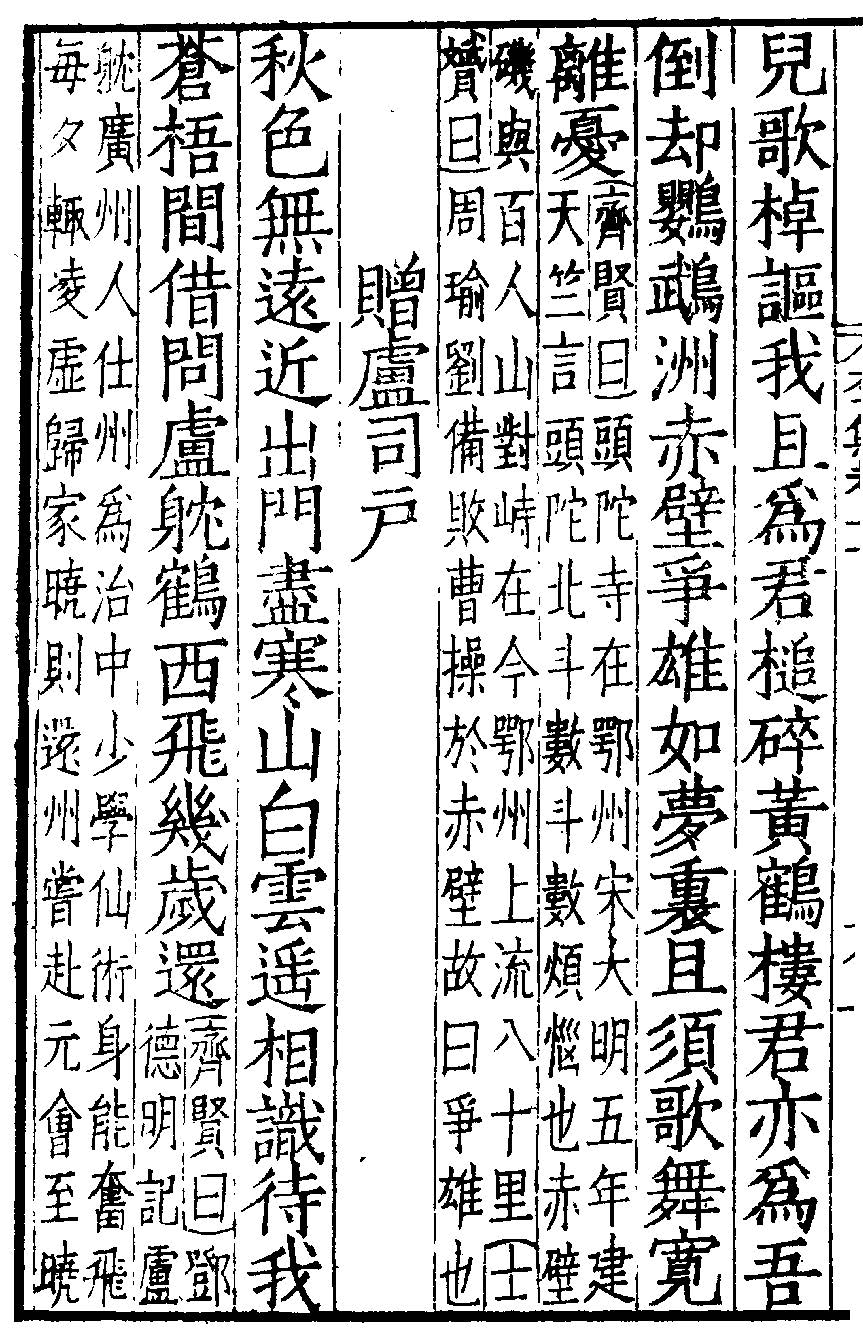 兒歌棹謳我且爲君槌碎黃鶴樓君亦爲吾
倒却鸚鵡洲赤壁爭雄如夢裏且須歌舞寛
離憂
齊賢曰頭陀寺在鄂州宋大明五年建
天竺言頭陀北斗數斗數煩惱也赤壁
磯與百人山對峙在今鄂州上流八十里士
贇曰周瑜劉備敗曹操於赤壁故曰爭雄也
贈盧司戸
秋色無遠近出門盡寒山白雲遥相識待我
蒼梧間借問盧躭鶴西飛幾歲還
齊賢曰鄧
德明記盧
躭廣州人仕州爲治中少學仙術身能奮飛
每夕輙凌虛歸家曉則還州嘗赴元會至曉